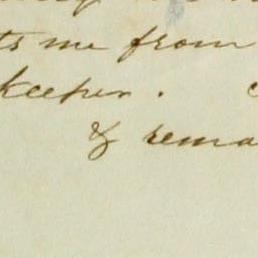 ts me from
keeper.
& rema